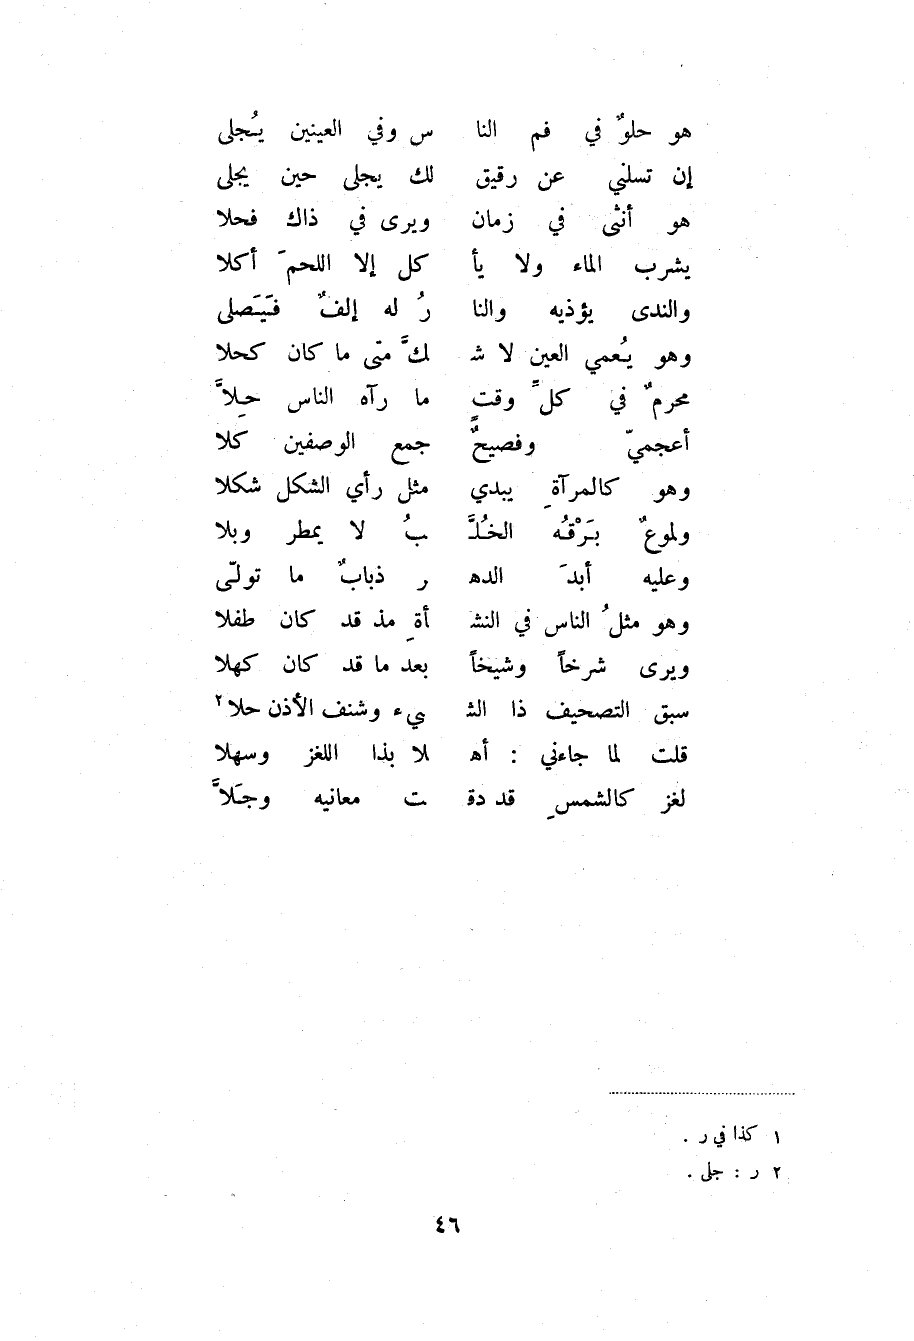 هو حلوٌ في فم النا س وفي العينين يُجلى
إن تسلني عن رقيق لك يجلى حين يجلى
هو أنثى في زمان ويرى في ذاك فحلا
يشرب الماء ولا يأ كل إلا اللحمَ أكلا
والندى يؤذيه والنا رُ له إلفٌ فَيَتَصلى
وهو يُعمي العين لا شـ كَّ متى ما كان كحلا
محرمٌ في كلِّ وقتٍ ما رآه الناس حِلاَّ
أعجميّ وفصيحٌ جمع الوصفين كلا
وهو كالمرآةِ يبدي مثل رأي الشكل شكلا
ولموعٌ بَرْقُه الخُلَّـ ـبُ لا يمطر وبلا
وعليه أبدَ الدهـ ر ذبابٌ ما تولّى
وهو مثلُ الناس في النشـ أةِ مذ قد كان طفلا
ويرى شرخاً وشيخاً بعد ما قد كان كهلا
سبق التصحيف ذا الشـ يء وشنف الأذن حلا٢
قلت لما جاءني : أهـ لا بذا اللغز وسهلا
لغز كالشمسِ قد دقـ ـت معانيه وجَلاَّ
١ كذا في ر .
٢ ر : جلى .
٤٦